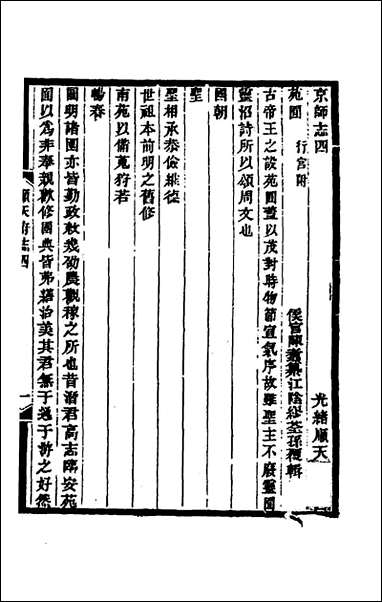 京師志四　光緒順天
苑囿　行宮附　侯官陳纂江陰繆荃孫覆輯
古帝王之設苑囿蓋以茂對時物節宣氣序故雖聖主不廢靈囿
靈沼詩所以頌周文也
國朝
聖
聖相承恭儉維德
世祖本前明之舊修
南苑以備蒐狩若
暢春
圓明諸園亦皆勤政敕幾劭農觀稼之所也昔潛君高志臨安苑
囿以為非奉親歡修國典皆弗繕治美其君無于過于游之好然
順天府志四
一